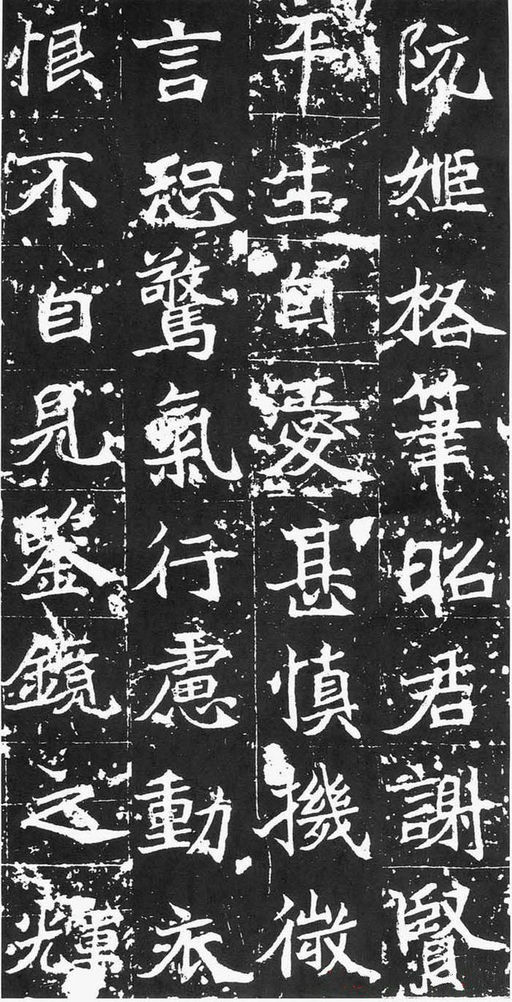 阮姬格筆昭君謝賢
平生自愛甚慎機微
言恐驚氣行慮動衣
惧不自見鑒鏡之輝